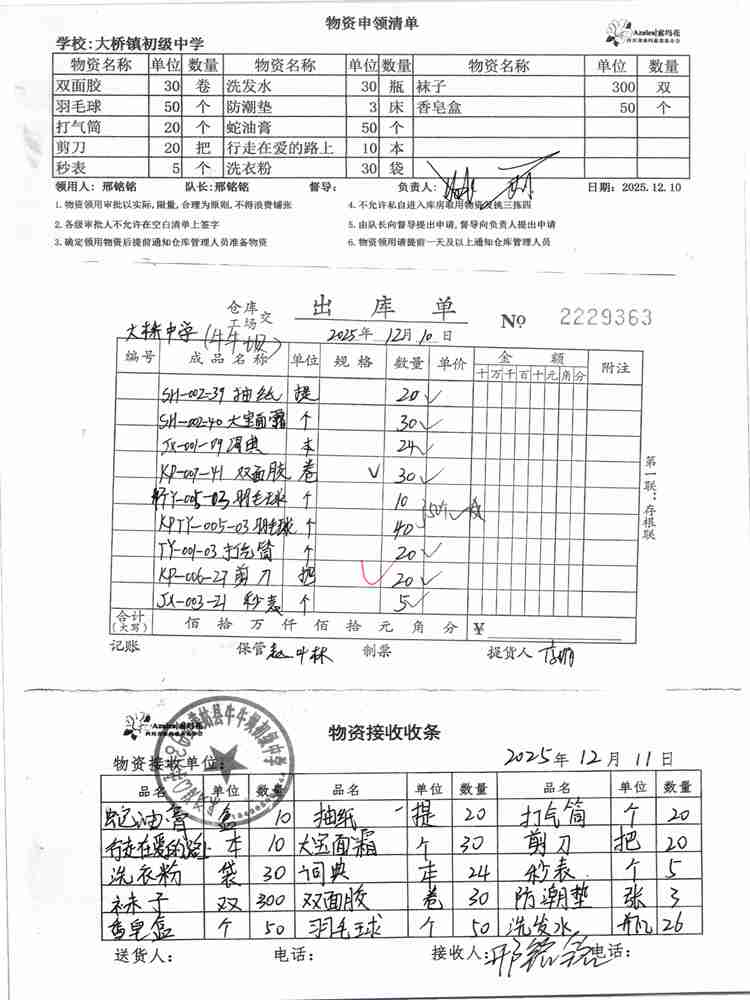 物资申领清单
Azalea|索玛花
学校:大桥镇初级中学
物资名称 单位 数量 物资名称 单位 数量 物资名称 单位 数量
双面胶 30 卷 洗发水 30 瓶 袜子 300 双
羽毛球 50 个 防潮垫 3 床 香皂盒 50 个
打气筒 20 个 蛇油膏 50 个
剪刀 20 把 行走在爱的路上 10 本
秒表 5 个 洗衣粉 30 袋
领用人: 邢铭铭 队长:邢铭铭 督导: 负责人: 日期: 2025.12.10
1.物资领用审批以实际,限量,合理为原则,不得浪费铺张 4.不允许私自进入库房取用物资及挑三拣四
2.各级审批人不允许在空白清单上签字 5.由队长向督导提出申请,督导向负责人提出申请
3.确定领用物资后提前通知仓库管理人员准备物资 6.物资领用请提前一天及以上通知仓库管理人员
仓库
工场 交 出库单 № 2229363
大桥中学(牛牛坝) 2025年 12月 10日
编号 成品名称 单位 规格 数量 单价 金额 附注
十万千百十元角分
SH-002-39 抽纸 提 20
SH-002-40 大宝面霜 个 30
JX-001-09 词典 本 24
KP-007-41 双面胶 卷 30
TY-005-03 羽毛球 个 10
KPTY-005-03 羽毛球 个 40
TY-001-03 打气筒 个 20
KP-006-27 剪刀 把 20
JX-003-21 秒表 个 5
第一联:存根联
合计(大写) 佰拾万仟佰拾元角分 ¥
记账 保管 制票 提货人
Azalea|索玛花
物资接收收条
牛牛坝初级中学
物资接收单位: 2025年 12月 11日
品名 单位 数量 品名 单位 数量 品名 单位 数量
蛇油膏 盒 10 抽纸 提 20 打气筒 个 20
行走在爱的路上 本 10 大宝面霜 个 30 剪刀 把 20
洗衣粉 袋 30 词典 本 24 秒表 个 5
袜子 双 300 双面胶 卷 30 防潮垫 张 3
香皂盒 个 50 羽毛球 个 50 洗发水 瓶 26
送货人: 电话: 接收人:邢铭铭 电话: